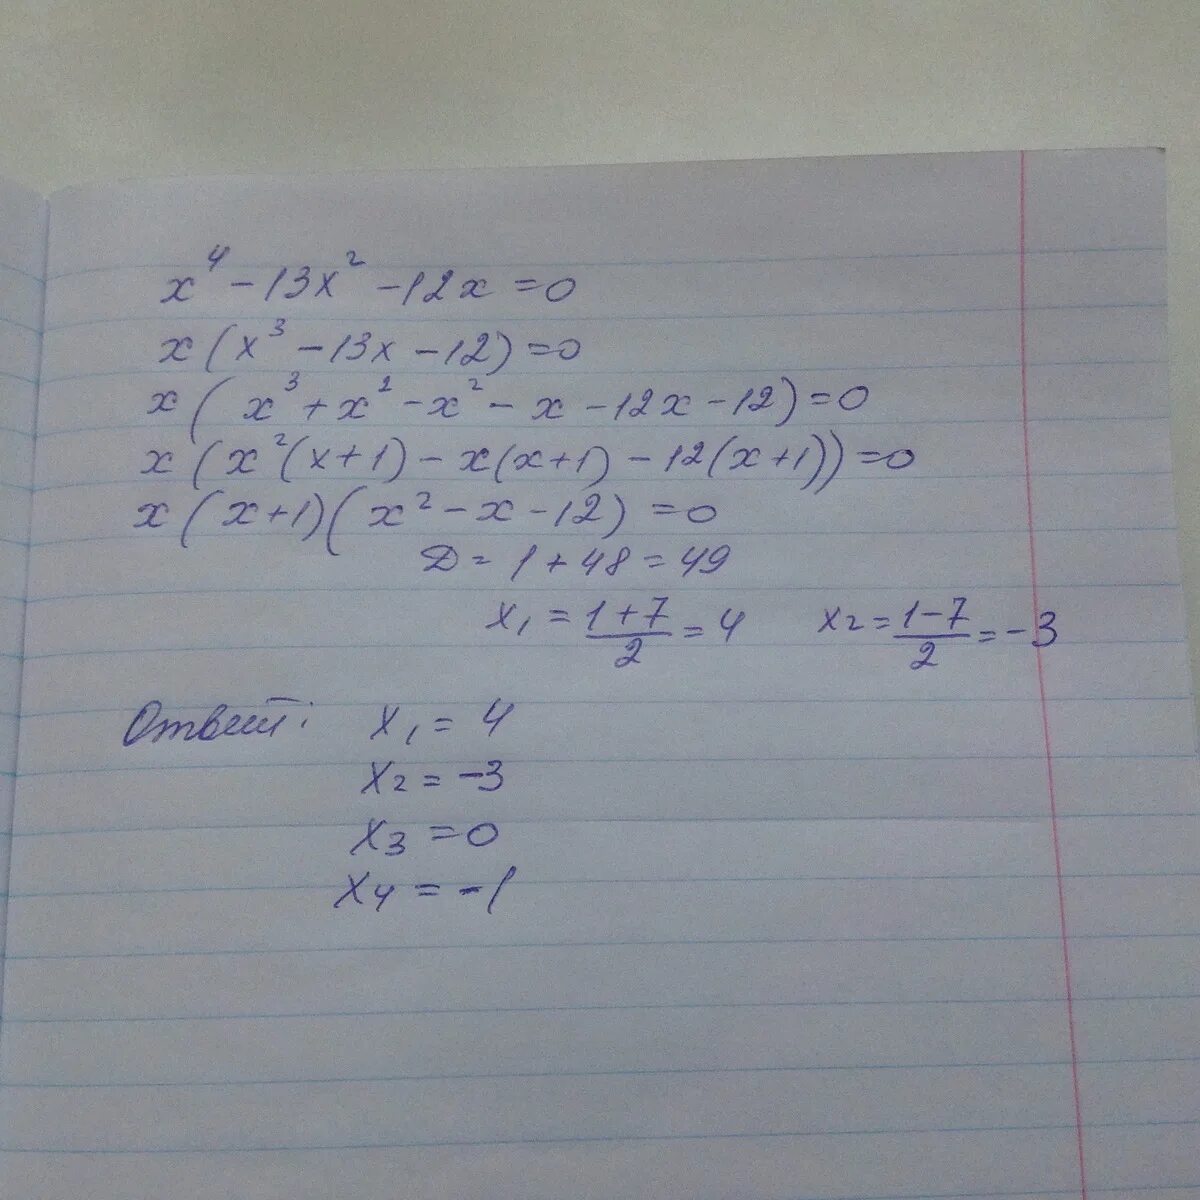 x⁴ - 13x² - 12x = 0
x(x³ - 13x - 12) = 0
x(x³ + x² - x² - x - 12x - 12) = 0
x(x²(x+1) - x(x+1) - 12(x+1)) = 0
x(x+1)(x² - x - 12) = 0
Д = 1 + 48 = 49
x₁ = (1+7)/2 = 4 x₂ = (1-7)/2 = -3
Ответ: x₁ = 4
x₂ = -3
x₃ = 0
x₄ = -1